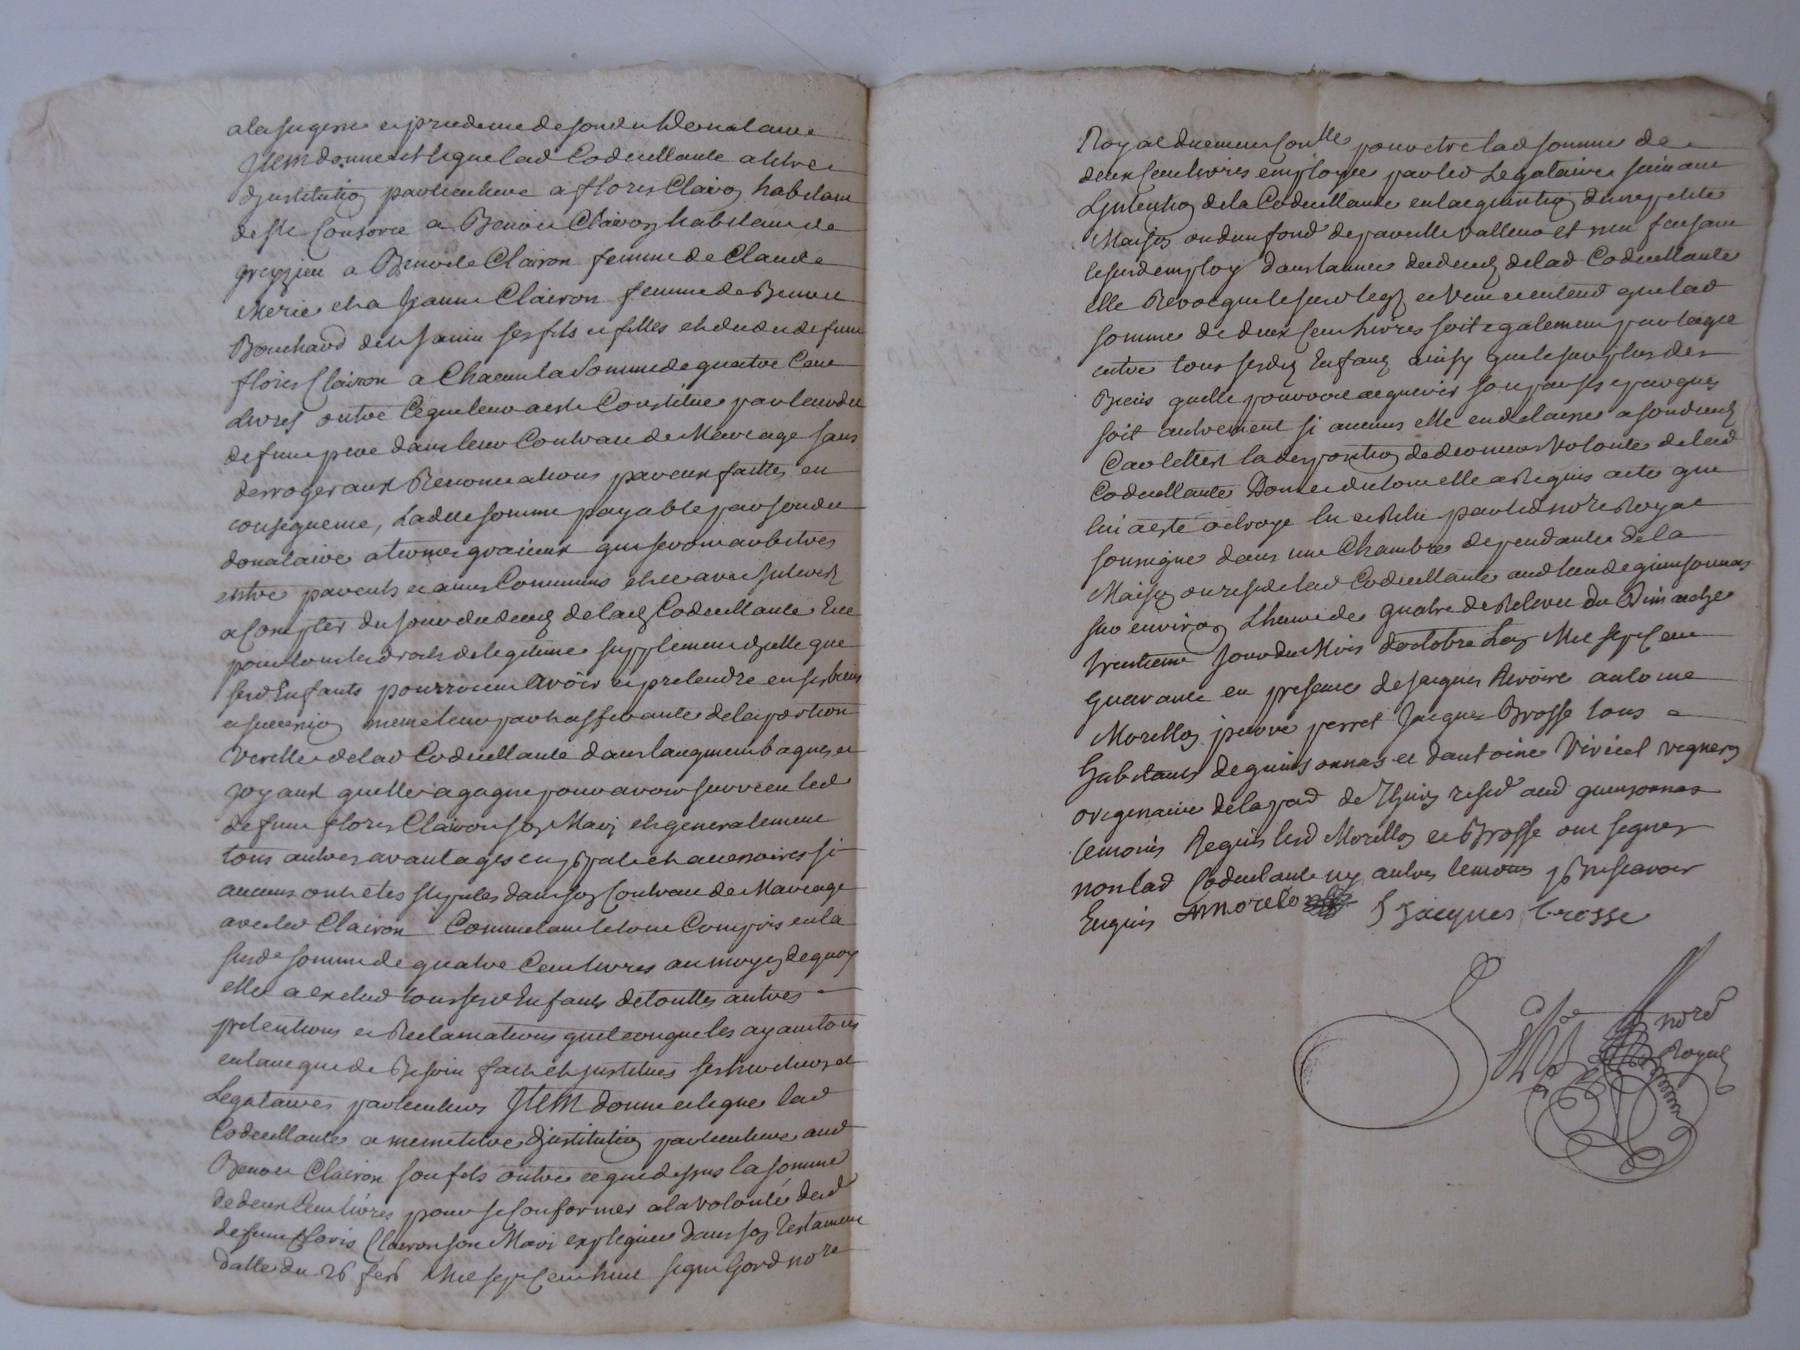 a la sagesse et prudence de sondit donataire
Item donne et legue lad Codicillante a titre
dinstitution particuliere a floris Clairon habitant
de Ste Consorce a Benoit Clairon habitant de
grezieu a Benoite Clairon femme de Claude
Merie et a Jeanne Clairon femme de Benoit
Bouchard ses fils et filles et dudit defunt
floris Clairon a Chacun la Somme de quatre Cent
Livres outre Ce que leur a esté Constitué par leurdit
defunt pere dans leur Contract de Mariage sans
derroger aux Renonciations par eux faittes en
consequence, Ladite somme payable par sondit
donataire a termes gratieux qui seront arbitres
entre parents et amis Communs et ce avec Interest
a Compter du jour du deces de lad Codicillante Et ce
pour tous les droits de legitime supplement dicelle que
sesd Enfants pourroient Avoir et pretendre en ses biens
et succession meme leur part afferante de la portion
Virille de lad Codicillante dans laugment bagues et
joyaux quelle a gagné pour avoir survecu led
defunt floris Clairon son Mary et generalement
tous autres avantages et accessoires si
aucuns ont etes stipules dans son Contract de Mariage
avec led Clairon Comme etant le tout Compris en la
susde somme de quatre Cent livres au moyen de quoy
elle a exclud tous sesd Enfants de touttes autres
pretentions et Reclamations quelconque les ayant tous
en tant que de Besoin fait et institués ses heritiers et
Legataires particuliers Item donne et legue lad
Codicillante a meme titre dinstitution particuliere aud
Benoit Clairon son fils outre ce que dessus la somme
de deux Cent livres pour se Conformer a la volonté dud
defunt floris Clairon son Mari expliquée dans son Testament
datte du 26 feb Mil sept Cent huit signé Gord nore
Royal duement Conllé pour etre lad somme de
deux Cent livres employée par led Legataire suivant
Lintention de la Codicillante en lacquisition dune petite
Maison ou dun fond de pareille valleur et en ne faisant
lesusd employ dans lannée du deces de lad Codicillante
elle Revoque le susd legs et veut et entend que lad
somme de deux Cent livres soit egalement partagée
entre tous sesdits Enfans ainsy que le surplus des
Biens quelle pourroit acquerir
soit autrement si aucuns elle en delaisse a son deces
Car telle est la disposition de derniere volonté de lad
Codicillante Dont et du tout elle a Requis acte que
lui a esté octroyé lu et Relu par led nore Royal
soussigne dans une Chambre dependante de la
Maison ou reside lad Codicillante aud lieu de quinsonnas
sur environ Lheure de quatre de Relevée du Dimanche
trentieme jour du Mois doctobre Lan Mil sept Cent
quarante en presence de Jacques Rivoire antoine
Morellon pierre perret Jacques Brosse tous
habitants de quinsonnas et dantoine Viricel vigneron
originaire de la par de Thurin resid aud quinsonnas
temoins Requis lesd Morellon et Brosse ont signés
non lad Codicillante ny autres temoins pr ne scavoir
Enquis A Morelon J Jacques brosse
nore
Royal